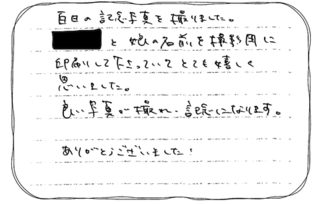 百日の記念写真を撮りました。
と娘の名前を撮影用に
印刷りして下さっていてとても嬉しく
思いました。
良い写真が撮れ、記念になります。
ありがとうございました!